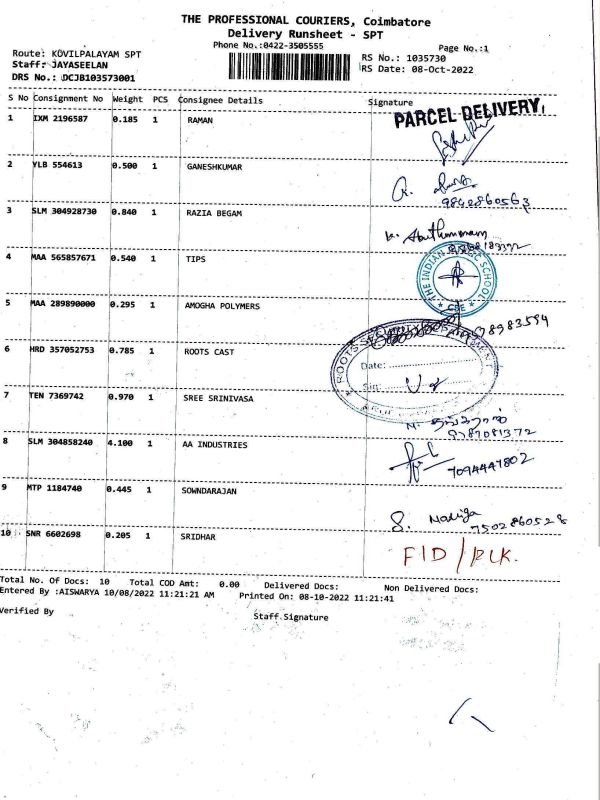 THE PROFESSIONAL COURIERS, Coimbatore
Delivery Runsheet - SPT
Phone No.:0422-3505555
Page No.:1
Route: KOVILPALAYAM SPT
RS No.: 1035730
Staff: JAYASEELAN
RS Date: 08-Oct-2022
DRS No.: DCJB103573001
S No Consignment No Weight PCS Consignee Details Signature
PARCEL DELIVERY
1 IXM 2196587 0.185 1 RAMAN
2 YLB 554613 0.500 1 GANESHKUMAR
9840860563
3 SLM 304928730 0.840 1 RAZIA BEGAM
4 MAA 565857671 0.540 1 TIPS
THE INDIAN PUBLIC SCHOOL
CBE
5 MAA 289890000 0.295 1 AMOGHA POLYMERS
6 HRD 357052753 0.785 1 ROOTS CAST
ROOTS
Date:
Sig:
7 TEN 7369742 0.970 1 SREE SRINIVASA
9787081372
8 SLM 304858240 4.100 1 AA INDUSTRIES
7094447802
9 MTP 1184740 0.445 1 SOWNDARAJAN
S. Nadiya
7502860528
10 SNR 6602698 0.205 1 SRIDHAR
FID/BLK.
Total No. Of Docs: 10 Total COD Amt: 0.00 Delivered Docs: Non Delivered Docs:
Entered By :AISWARYA 10/08/2022 11:21:21 AM Printed On: 08-10-2022 11:21:41
Verified By
Staff Signature